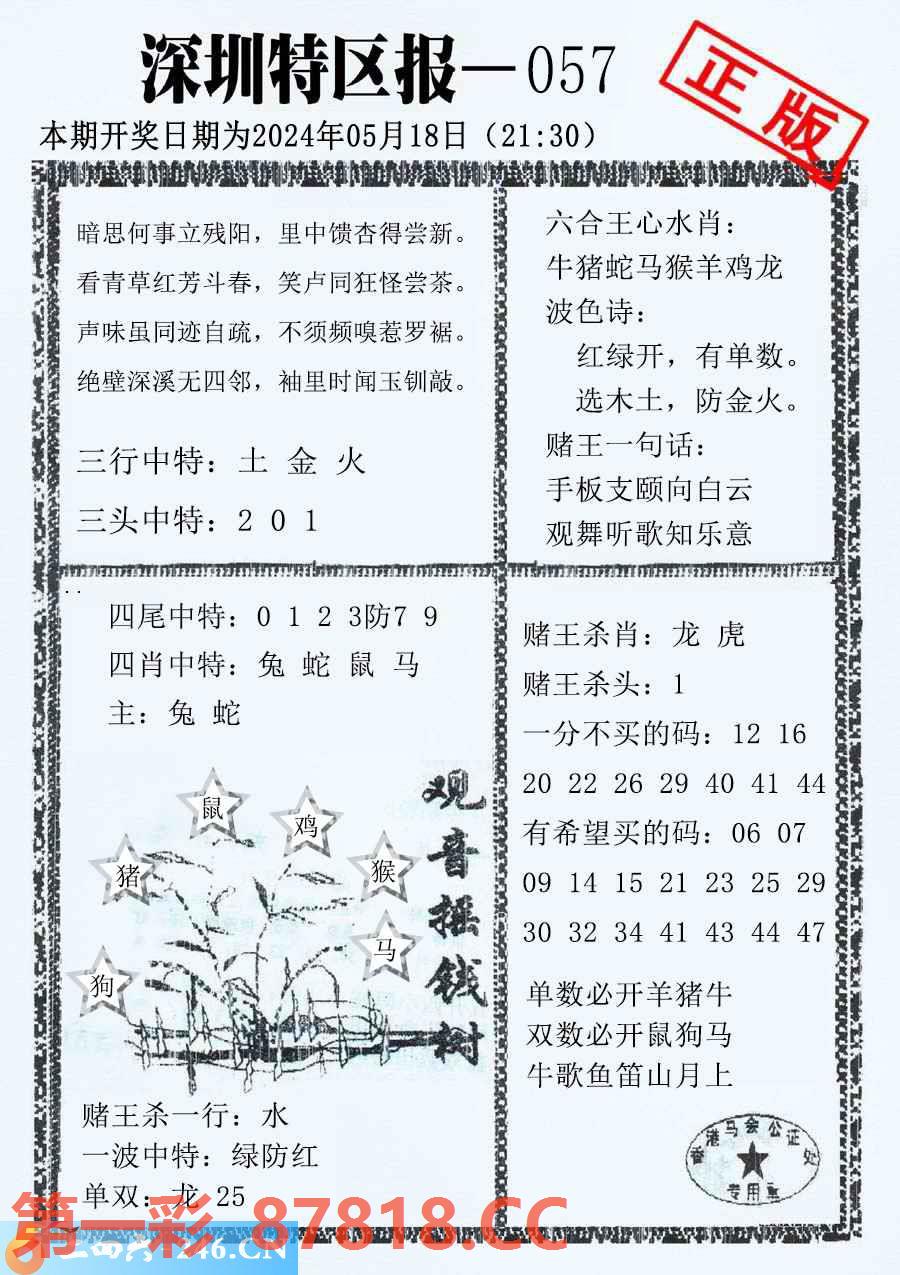 深圳特区报—057
正版
本期开奖日期为2024年05月18日（21:30）
暗思何事立残阳，里中馈杏得尝新。
看青草红芳斗春，笑卢同狂怪尝茶。
声味虽同迹自疏，不须频嗅惹罗裾。
绝壁深溪无四邻，袖里时闻玉钏敲。
三行中特：土 金 火
三头中特：2 0 1
六合王心水肖：
牛猪蛇马猴羊鸡龙
波色诗：
红绿开，有单数。
选木土，防金火。
赌王一句话：
手板支颐向白云
观舞听歌知乐意
四尾中特：0 1 2 3防7 9
四肖中特：兔 蛇 鼠 马
主：兔 蛇
鼠
鸡
猪
猴
马
狗
观音摇钱树
赌王杀一行：水
一波中特：绿防红
单双：龙 25
赌王杀肖：龙 虎
赌王杀头：1
一分不买的码：12 16
20 22 26 29 40 41 44
有希望买的码：06 07
09 14 15 21 23 25 29
30 32 34 41 43 44 47
单数必开羊猪牛
双数必开鼠狗马
牛歌鱼笛山月上
香港马会公证处
专用章
第一彩 87818.CC
246.CN